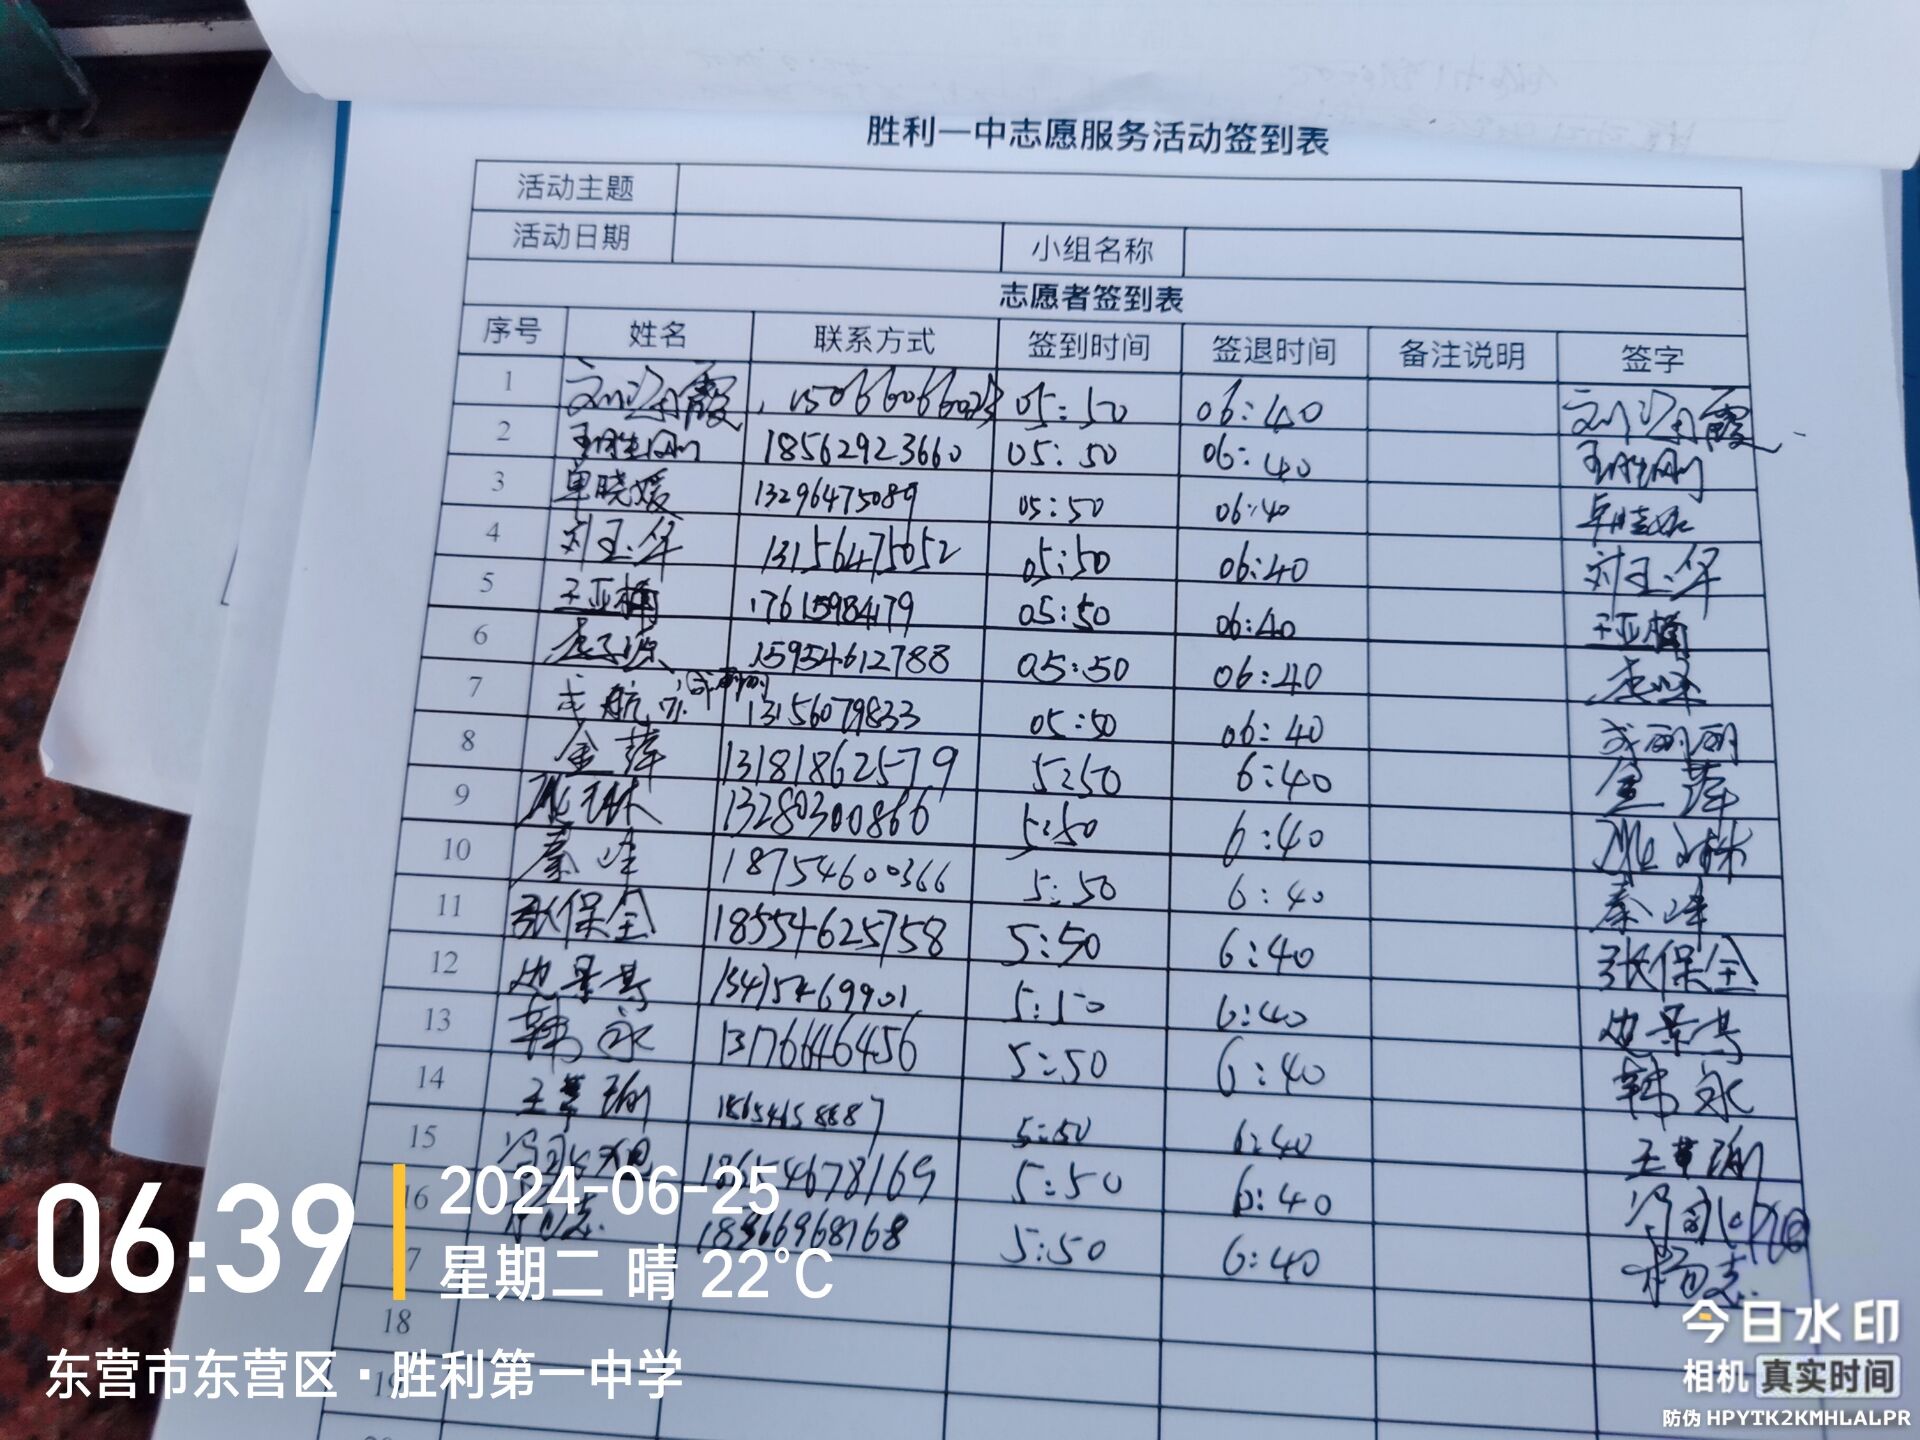 胜利一中志愿服务活动签到表
活动主题
活动日期 小组名称
志愿者签到表
序号 姓名 联系方式 签到时间 签退时间 备注说明 签字
1 15066066023 05:50 06:40
2 18562923660 05:50 06:40
3 单晓媛 13296475089 05:50 06:40
4 刘玉华 13156475052 05:50 06:40 刘玉华
5 王亚楠 17615984179 05:50 06:40 王亚楠
6 15954612788 05:50 06:40
7 13156079833 05:50 06:40 成丽丽
8 金萍 13181862579 5:50 6:40 金萍
9 13280300866 5:50 6:40
10 秦峰 18754600366 5:50 6:40 秦峰
11 张保全 18554625758 5:50 6:40 张保全
12 边景芳 5:50 6:40 边景芳
13 韩永 13176646456 5:50 6:40 韩永
14 18654658887 5:50 6:40
15 18654678169 5:50 6:40
16 18366968768 5:50 6:40
17
18
19
06:39
2024-06-25
星期二 晴 22℃
东营市东营区·胜利第一中学
今日水印
相机 真实时间
防伪 HPYTK2KMHLALPR